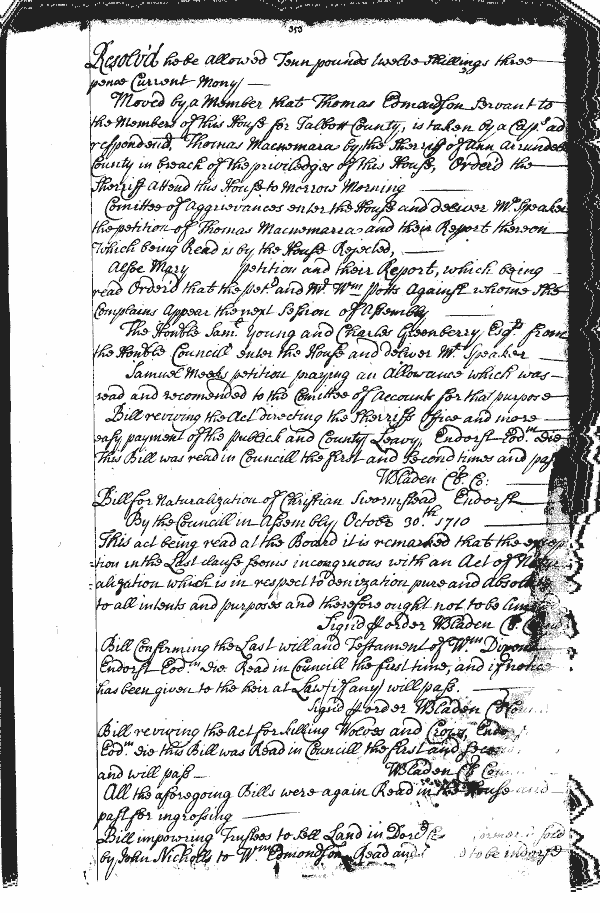 353
Resolv'd he be allowed Tenn pounds twelve shillings three
pence Current Mony
Moved by a Member that Thomas Edmondson Servant to
the Members of this House for Talbott County, is taken by a Cap.s ad
respondend. Thomas Macnemara by the Sherriff of Ann Arrundel
County in breach of the priviledges of this House, Order'd the
Sherriff attend this House to Morrow Morning
Comittee of Aggrievances enter the House and deliver Mr Speaker
the petition of Thomas Macnemarra and their Report thereon
Which being Read is by the House Rejected,
Alsoe Mary petition and their Report, which being
read Order'd that the petr and Mr Wm Potts Against whome she
Complains Appear the next Session of Assembly
The Honble Sam. Young and Charles Greenberry Esqrs from
the Honble Councill enter the House and deliver Mr Speaker
Samuel Meeks petition praying an Allowance which was
read and recomended to the Comittee of Accounts for that purpose
Bill reviving the Act directing the Sherriffs Office and more
easy payment of the publick and County Leavy, Endorst Eod.m die
This Bill was read in Councill the first and second times and
WBladen Cl. Co:
Bill for Naturalization of Christian Endorst
By the Councill in Assembly October 30.th 1710
This act being read at the Board it is remarked that the
tion in the Last clause seems incongruous with an Act of
alization which is in respect to denization pure and
to all intents and purposes and therefore ought not to be
Signd p order WBladen Cl
Bill Confirming the Last will and Testament of Wm
Endorst Eod.m die Read in Councill the first time, and if notice
has been given to the heir at Law (if any) will pass.
Signd p order WBladen
Bill reviving the Act for killing Wolves and Crows,
Eod.m die this Bill was Read in Councill the first and
and will pass
WBladen Cl
All the aforegoing Bills were again Read in the House and
past for ingrossing
Bill impowring Trustees to sell Land in sold
by John Nicholls to Wm Edmondson Read and to be indorsd